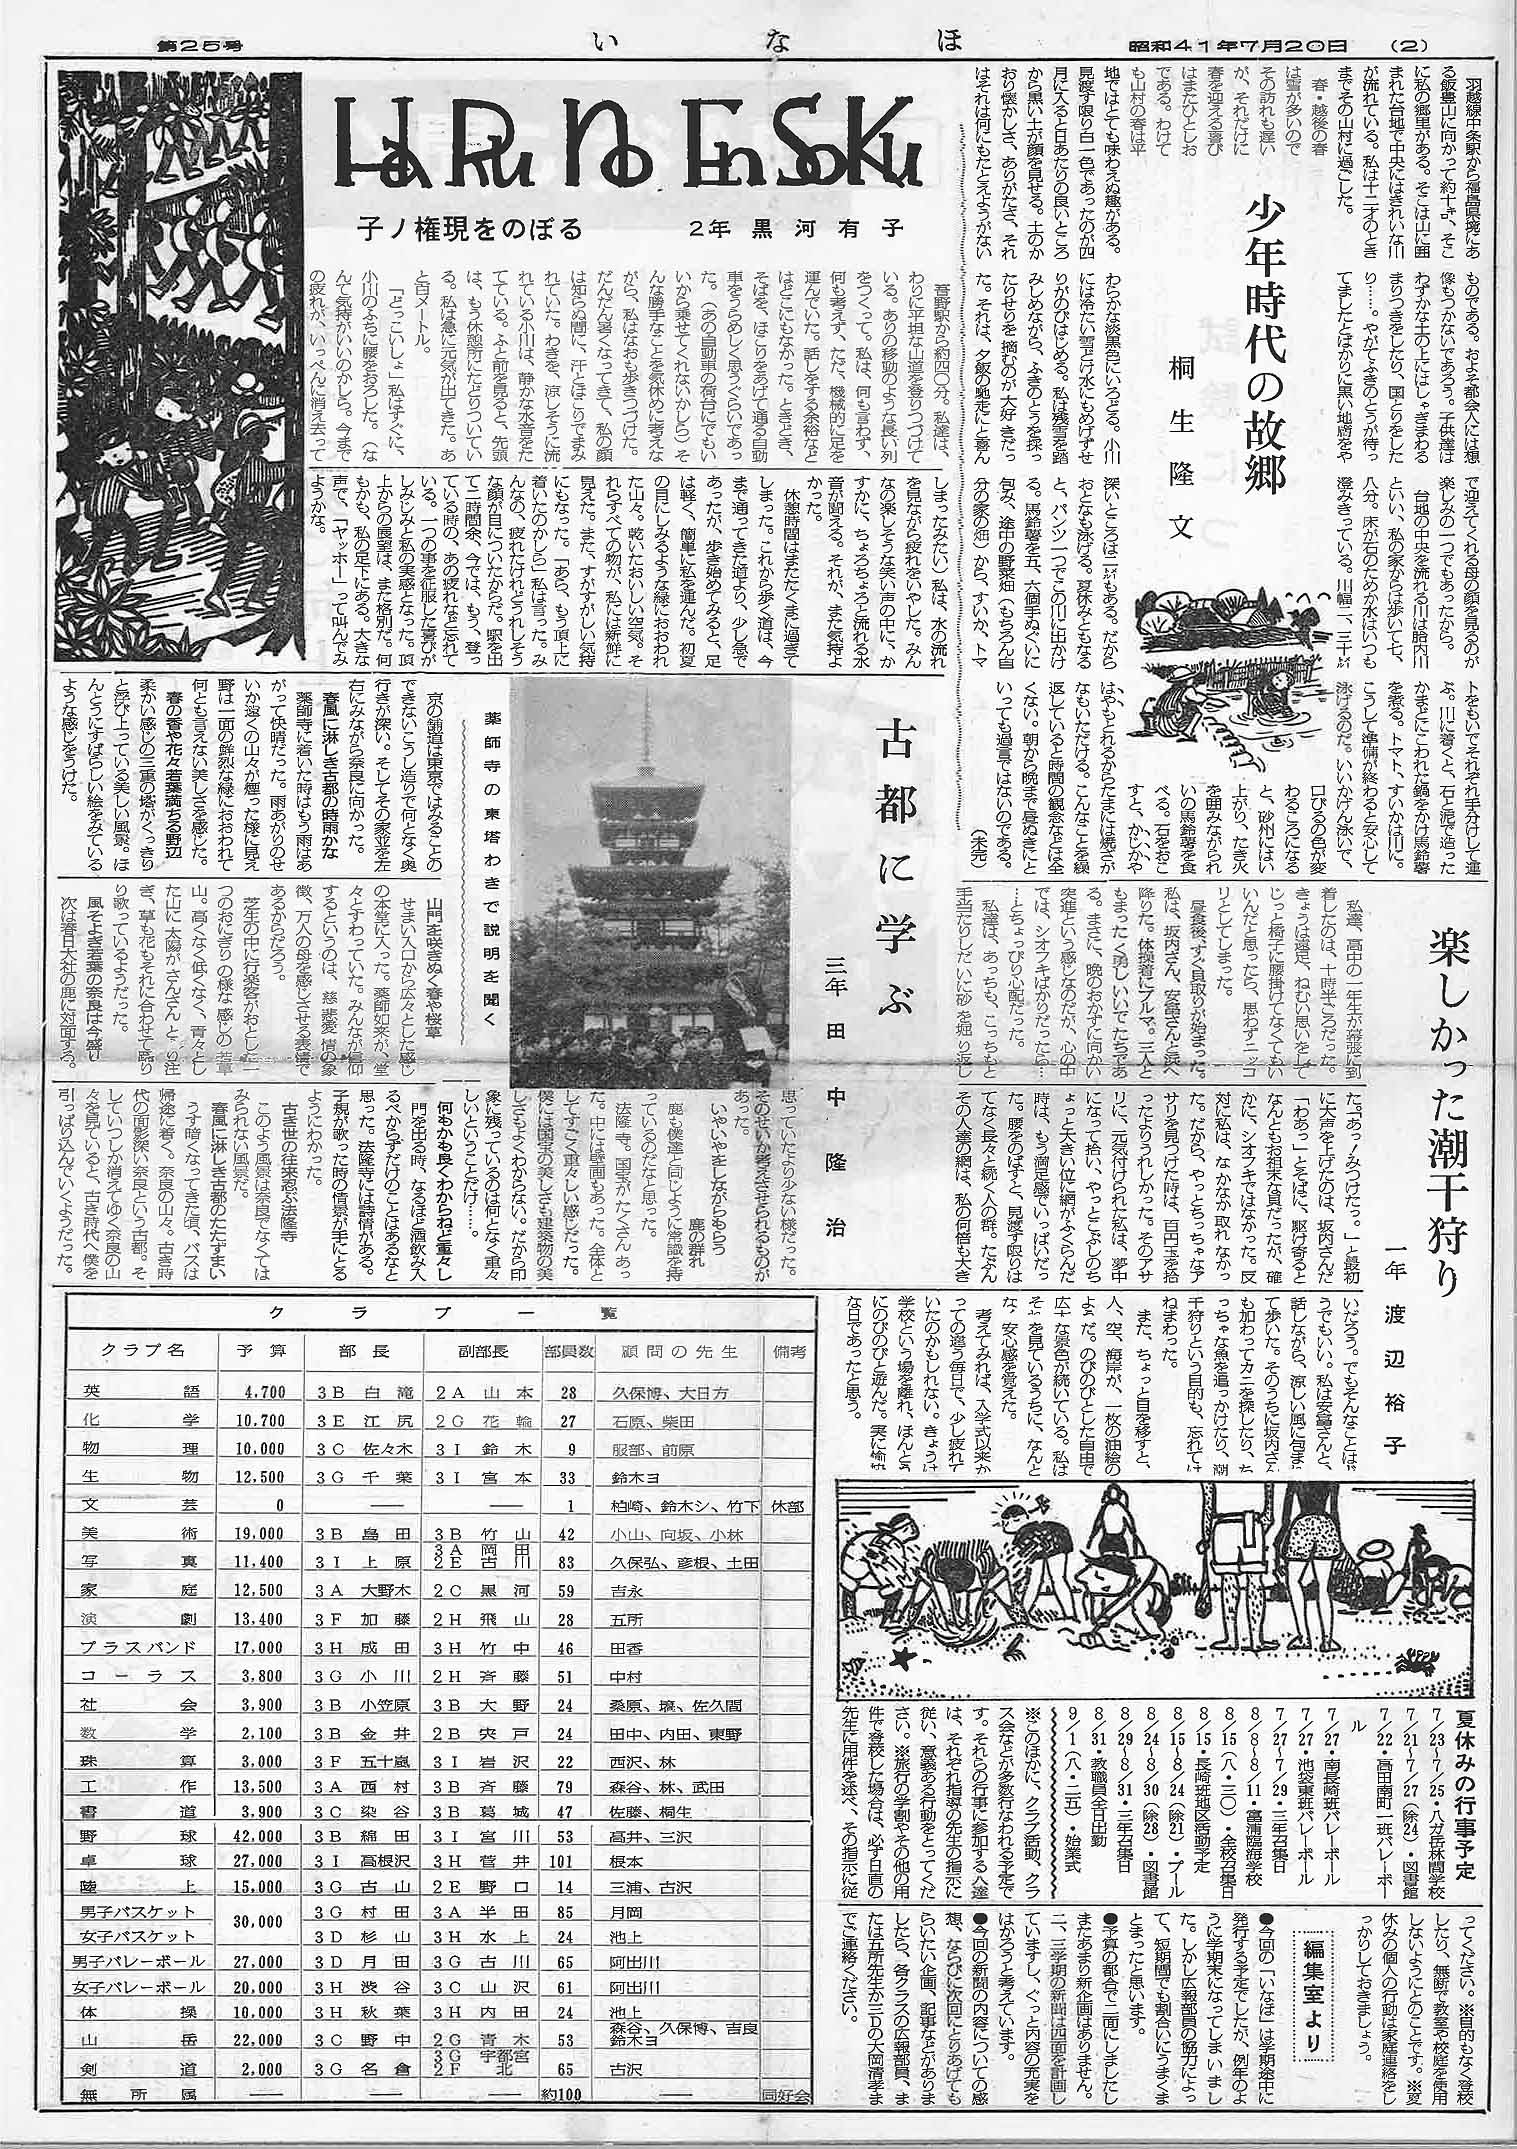 第25号
いなほ
昭和41年7月20日 (2)
少年時代の故郷
桐生隆文
羽越線中条駅から福島県境にあ
る飯豊山に向かって約十キ、そこ
に私の郷里がある。そこは山に囲
まれた台地で中央にはきれいな川
が流れている。私は十二才のとき
までその山村に過ごした。
春・越後の春
は雪が多いので
その訪れも遅い
が、それだけに
春を迎える喜び
はまたひとしお
である。わけて
も山村の春は平
地ではとても味わえぬ趣がある。
見渡す限り白一色であったのが四
月に入ると日あたりの良いところ
から黒い土が顔を見せる。土のか
おり懐かしさ、ありがたさ、それ
はそれは何にもたとえようがない
ものである。およそ都会人には想
像もつかないであろう。子供達は
わずかな土の上にはしゃぎまわる
まりつきをしたり、国とりをした
り……。やがてふきのとうが待っ
てましたとばかりに黒い地面をや
わらかな淡黒色にいろどる。小川
には冷たい雪どけ水にもめげずせ
りがのびはじめる。私は残雪を踏
みしめながら、ふきのとうを採っ
たりせりを摘むのが大好きだっ
た。それは、夕飯の馳走にと喜ん
で迎えてくれる母の顔を見るのが
楽しみの一つでもあったから。
台地の中央を流れる川は胎内川
といい、私の家からは歩いて七、
八分。床が石のためか水はいつも
澄みきっている。川幅二、三十㍍
深いところは二㍍もある。だから
おとなも泳げる。夏休みともなる
と、パンツ一つでこの川に出かけ
る。馬鈴薯を五、六個手ぬぐいに
包み、途中の野菜畑(もちろん自
分の家の畑)から、すいか、トマ
トをもいでそれぞれ手分けして運
ぶ。川に着くと、石と泥で造った
かまどにこわれた鍋をかけ馬鈴薯
を煮る。トマト、すいかは川に。
こうして準備が終わると安心して
泳げるのだ。いいかげん泳いで、
口びるの色が変
わるころになる
と、砂州にはい
上がり、たき火
を囲みながられ
いの馬鈴薯を食
べる。石をおこ
すと、かじかや
はやもとれるからたまには焼ざか
なもいただける。こんなことを繰
返していると時間の観念などは全
くない。朝から晩まで昼ぬきとと
いっても過言ではないのである。
(未完)
HaRu No EnSoKu
子ノ権現をのぼる
2年 黒河有子
吾野駅から約四〇分。私達は、
わりに平坦な山道を登りつづけて
いる。ありの移動のような長い列
をつくって。私は、何も言わず、
何も考えず、ただ、機械的に足を
運んでいた。話しをする余裕など
はどこにもなかった。ときどき、
そばを、ほこりをあげて通る自動
車をうらめしく思うぐらいであっ
た。(あの自動車の荷台にでもい
いから乗せてくれないかしら)そ
んな勝手なことを気休めに考えな
がら、私はなおも歩きつづけた。
だんだん暑くなってきて、私の顔
は知らぬ間に、汗とほこりでまみ
れていた。わきを、涼しそうに流
れている小川は、静かな水音をた
てている。ふと前を見ると、先頭
は、もう休憩所にたどりついてい
る。私は急に元気が出てきた。あ
と百メートル。
「どっこいしょ」私はすぐに、
小川のふちに腰をおろした。(な
んて気持がいいのかしら。今まで
の疲れが、いっぺんに消え去って
しまったみたい)私は、水の流れ
を見ながら疲れをいやした。みん
なの楽しそうな笑い声の中に、か
すかに、ちょろちょろと流れる水
音が聞える。それが、また気持よ
かった。
休憩時間はまたたくまに過ぎて
しまった。これから歩く道は、今
まで通ってきた道より、少し急で
あったが、歩き始めてみると、足
は軽く、簡単に私を運んだ。初夏
の目にしみるような緑におおわれ
た山々。乾いたおいしい空気。そ
れらすべての物が、私には新鮮に
見えた。また、すがすがしい気持
にもなった。「あら、もう頂上に
着いたのかしら」私は言った。み
んなの、疲れたけれどうれしそう
な顔が目についたからだ。駅を出
て二時間余、今では、もう、登っ
ている時の、あの疲れなど忘れて
いる。一つの事を征服した喜びが
しみじみと私の実感となった。頂
上からの展望は、また格別だ。何
もかも、私の足下にある。大きな
声で、「ヤッホー」って叫んでみ
ようかな。
古都に学ぶ
三年 田中隆治
薬師寺の東塔わきで説明を聞く
京の舗道は東京ではみることの
できないこうし造りで何となく奥
行きが深い。そしてその家並を左
右にみながら奈良に向かった。
春風に淋しき古都の時雨かな
薬師寺に着いた時はもう雨はあ
がって快晴だった。雨あがりのせ
いか遠くの山々が煙った様に見え
野は一面の鮮烈な緑におおわれて
何とも言えない美しさを感じた。
春の香や花々若葉満ちる野辺
柔かい感じの三重の塔がくっきり
と浮び上っている美しい風景。ほ
んとうにすばらしい絵をみている
ような感じをうけた。
山門を咲きぬく春や桜草
せまい入口から広々とした感じ
の本堂に入った。薬師如来が、堂
々とすわっていた。みんなが信仰
するというのは、慈悲愛情の象
徴、万人の母を感じさせる表情で
あるからだろう。
芝生の中に行楽客がおとした一
つのおにぎりの様な感じの若草
山。高くなく低くなく、青々とし
た山に太陽がさんさんとふり注
ぎ、草も花もそれに合わせて踊
り歌っているようだった。
風そよぎ若葉の奈良は今盛り
次は春日大社の鹿に対面する。
思っていたより少ない様だった。
そのせいか考えさせられるものが
あった。
いやいやをしながらもらう
鹿の群れ
鹿も僕達と同じように常識を持
っているのだなと思った。
法隆寺。国宝がたくさんあっ
た。中には壁画もあった。全体と
してすごく重々しい感じだった。
僕には国宝の美しさも建築物の美
しさもよくわからない。だから印
象に残っているのは何となく重々
しいということだけ……
何もかも良くわからねど重々し
門を出る時、なるほど酒飲み入
るべからずだけのことはあるなと
思った。法隆寺には詩情がある。
子規が歌った時の情景が手にとる
ようにわかった。
古き世の往来忍ぶ法隆寺
このような風景は奈良でなくては
みられない風景だ。
春風に淋しき古都のたたずまい
うす暗くなってきた頃、バスは
帰途に着く。奈良の山々。古き時
代の面影深い奈良という古都。そ
していつしか消えてゆく奈良の山
々を見ていると、古き時代へ僕を
引っぱり込んでいくようだった。
楽しかった潮干狩り
一年 渡辺裕子
私達、高中の一年生が幕張に到
着したのは、十時半ごろだった。
きょうは遠足、ねむい思いをして
じっと椅子に腰掛けてなくてもい
いんだと思ったら、思わずニッコ
リとしてしまった。
昼食後、すぐ貝取りが始まった。
私は、坂内さん、安富さんと浜へ
降りた。体操着にブルマ。三人と
もまったく勇しいいでたちであ
る。まさに、晩のおかずに向かい
突進という感じなのだが、心の中
では、シオフキばかりだったら…
…とちょっぴり心配だった。
私達は、あっちも、こっちもと
手当たりしだいに砂を掘り返し
た。“あっ!みつけたっ。”と最初
に大声を上げたのは、坂内さんだ
「わあっ」とそばに、駆け寄ると
なんともお粗末な貝だったが、確
かに、シオフキではなかった。反
対に私は、なかなか取れなかっ
た。だから、やっとちっちゃなア
サリを見つけた時は、百円玉を拾
ったよりうれしかった。そのアサ
リに、元気付けられた私は、夢中
になって拾い、やっとこぶしのち
ょっと大きい位に網がふくらんだ
時は、もう満足感でいっぱいだっ
た。腰をのばすと、見渡す限りは
てなく長々と続く人の群。たぶん
その人達の網は、私の何倍も大き
いだろう。でもそんなことはど
うでもいい。私は安富さんと、
話しながら、涼しい風に包まれ
て歩いた。そのうちに坂内さん
も加わってカニを探したり、ち
っちゃな魚を追っかけたり、潮
干狩りという目的も、忘れては
ねまわった。
また、ちょっと目を移すと、
人、空、海岸が、一枚の油絵の
ようだ。のびのびとした自由で
広大な景色が続いている。私は
それを見ているうちに、なんと
な、安心感を覚えた。
考えてみれば、入学式以来か
っての違う毎日で、少し疲れて
いたのかもしれない。きょうは
学校という場を離れ、ほんとう
にのびのびと遊んだ。実に愉快
な日であったと思う。
クラブ一覧
クラブ名 予算 部長 副部長 部員数 顧問の先生 備考
英語 4,700 3B 白滝 2A 山本 28 久保博、大日方
化学 10,700 3E 江尻 2G 花輪 27 石原、柴田
物理 10,000 3C 佐々木 3I 鈴木 9 服部、前原
生物 12,500 3G 千葉 3I 宮本 33 鈴木ヨ
文芸 0 ―― ―― 1 柏崎、鈴木シ、竹下 休部
美術 19,000 3B 島田 3B 竹山 42 小山、向坂、小林
写真 11,400 3I 上原 3A 岡田 2E 古川 83 久保弘、彦根、土田
家庭 12,500 3A 大野木 2C 黒河 59 吉永
演劇 13,400 3F 加藤 2H 飛山 28 五所
ブラスバンド 17,000 3H 成田 3H 竹中 46 田香
コーラス 3,800 3G 小川 2H 斉藤 51 中村
社会 3,900 3B 小笠原 3B 大野 24 桑原、壕、佐久間
数学 2,100 3B 金井 2B 宍戸 24 田中、内田、東野
珠算 3,000 3F 五十嵐 3I 岩沢 22 西沢、林
工作 13,500 3A 西村 3B 斉藤 79 森谷、林、武田
書道 3,900 3C 染谷 3B 葛城 47 佐藤、桐生
野球 42,000 3B 綿田 3I 宮川 53 高井、三沢
卓球 27,000 3I 高根沢 3H 菅井 101 根本
陸上 15,000 3G 古山 2E 野口 14 三浦、古沢
男子バスケット 30,000 3G 村田 3A 半田 85 月岡
女子バスケット 3D 杉山 3H 水上 24 池上
男子バレーボール 27,000 3D 月田 3G 古川 65 阿出川
女子バレーボール 20,000 3H 渋谷 3C 山沢 61 阿出川
体操 10,000 3H 秋葉 3H 内田 24 池上
山岳 22,000 3C 野中 2G 青木 53 森谷、久保博、吉良 鈴木ヨ
剣道 2,000 3G 名倉 3G 宇都宮 2F 北 65 古沢
無所属 ―― ―― ―― 約100 ―― 同好会
夏休みの行事予定
7/23~7/25・八ガ岳林間学校
7/21~7/27(除24)・図書館
7/22・高田南町一班バレーボー
ル
7/27・南長崎班バレーボール
7/27・池袋東班バレーボール
7/27~7/29・三年召集日
8/8~8/11・富浦臨海学校
8/15(八・三〇)・全校召集日
8/15・長崎班地区活動予定
8/15~8/24(除21)・プール
8/24~8/30(除28)・図書館
8/29~8/31・三年召集日
8/31・教職員全日出勤
9/1(八・二五)・始業式
※このほかに、クラブ活動、クラ
ス会などが多数行なわれる予定で
す。それらの行事に参加する人達
は、それぞれ指導の先生の指示に
従い、意義ある行動をとってくだ
さい。※旅行の学割やその他の用
件で登校した場合は、必ず日直の
先生に用件を述べ、その指示に従
ってください。※目的もなく登校
したり、無断で教室や校庭を使用
しないようにとのことです。※夏
休みの個人の行動は家庭連絡をし
っかりしておきましょう。
編集室より
●今回の「いなほ」は学期途中に
発行する予定でしたが、例年のよ
うに学期末になってしまいまし
た。しかし広報部員の協力によっ
て、短期間でも割合いにうまくま
とまったと思います。
●予算の都合で二面にしましたし
またあまり新企画はありません。
二、三学期の新聞は四面を計画し
ていますし、ぐっと内容の充実を
はかろうと考えています。
●今回の新聞の内容についての感
想、ならびに次回にとりあげても
らいたい企画、記事などがありま
したら、各クラスの広報部員、ま
たは五所先生か三Dの大岡清孝ま
でご連絡ください。